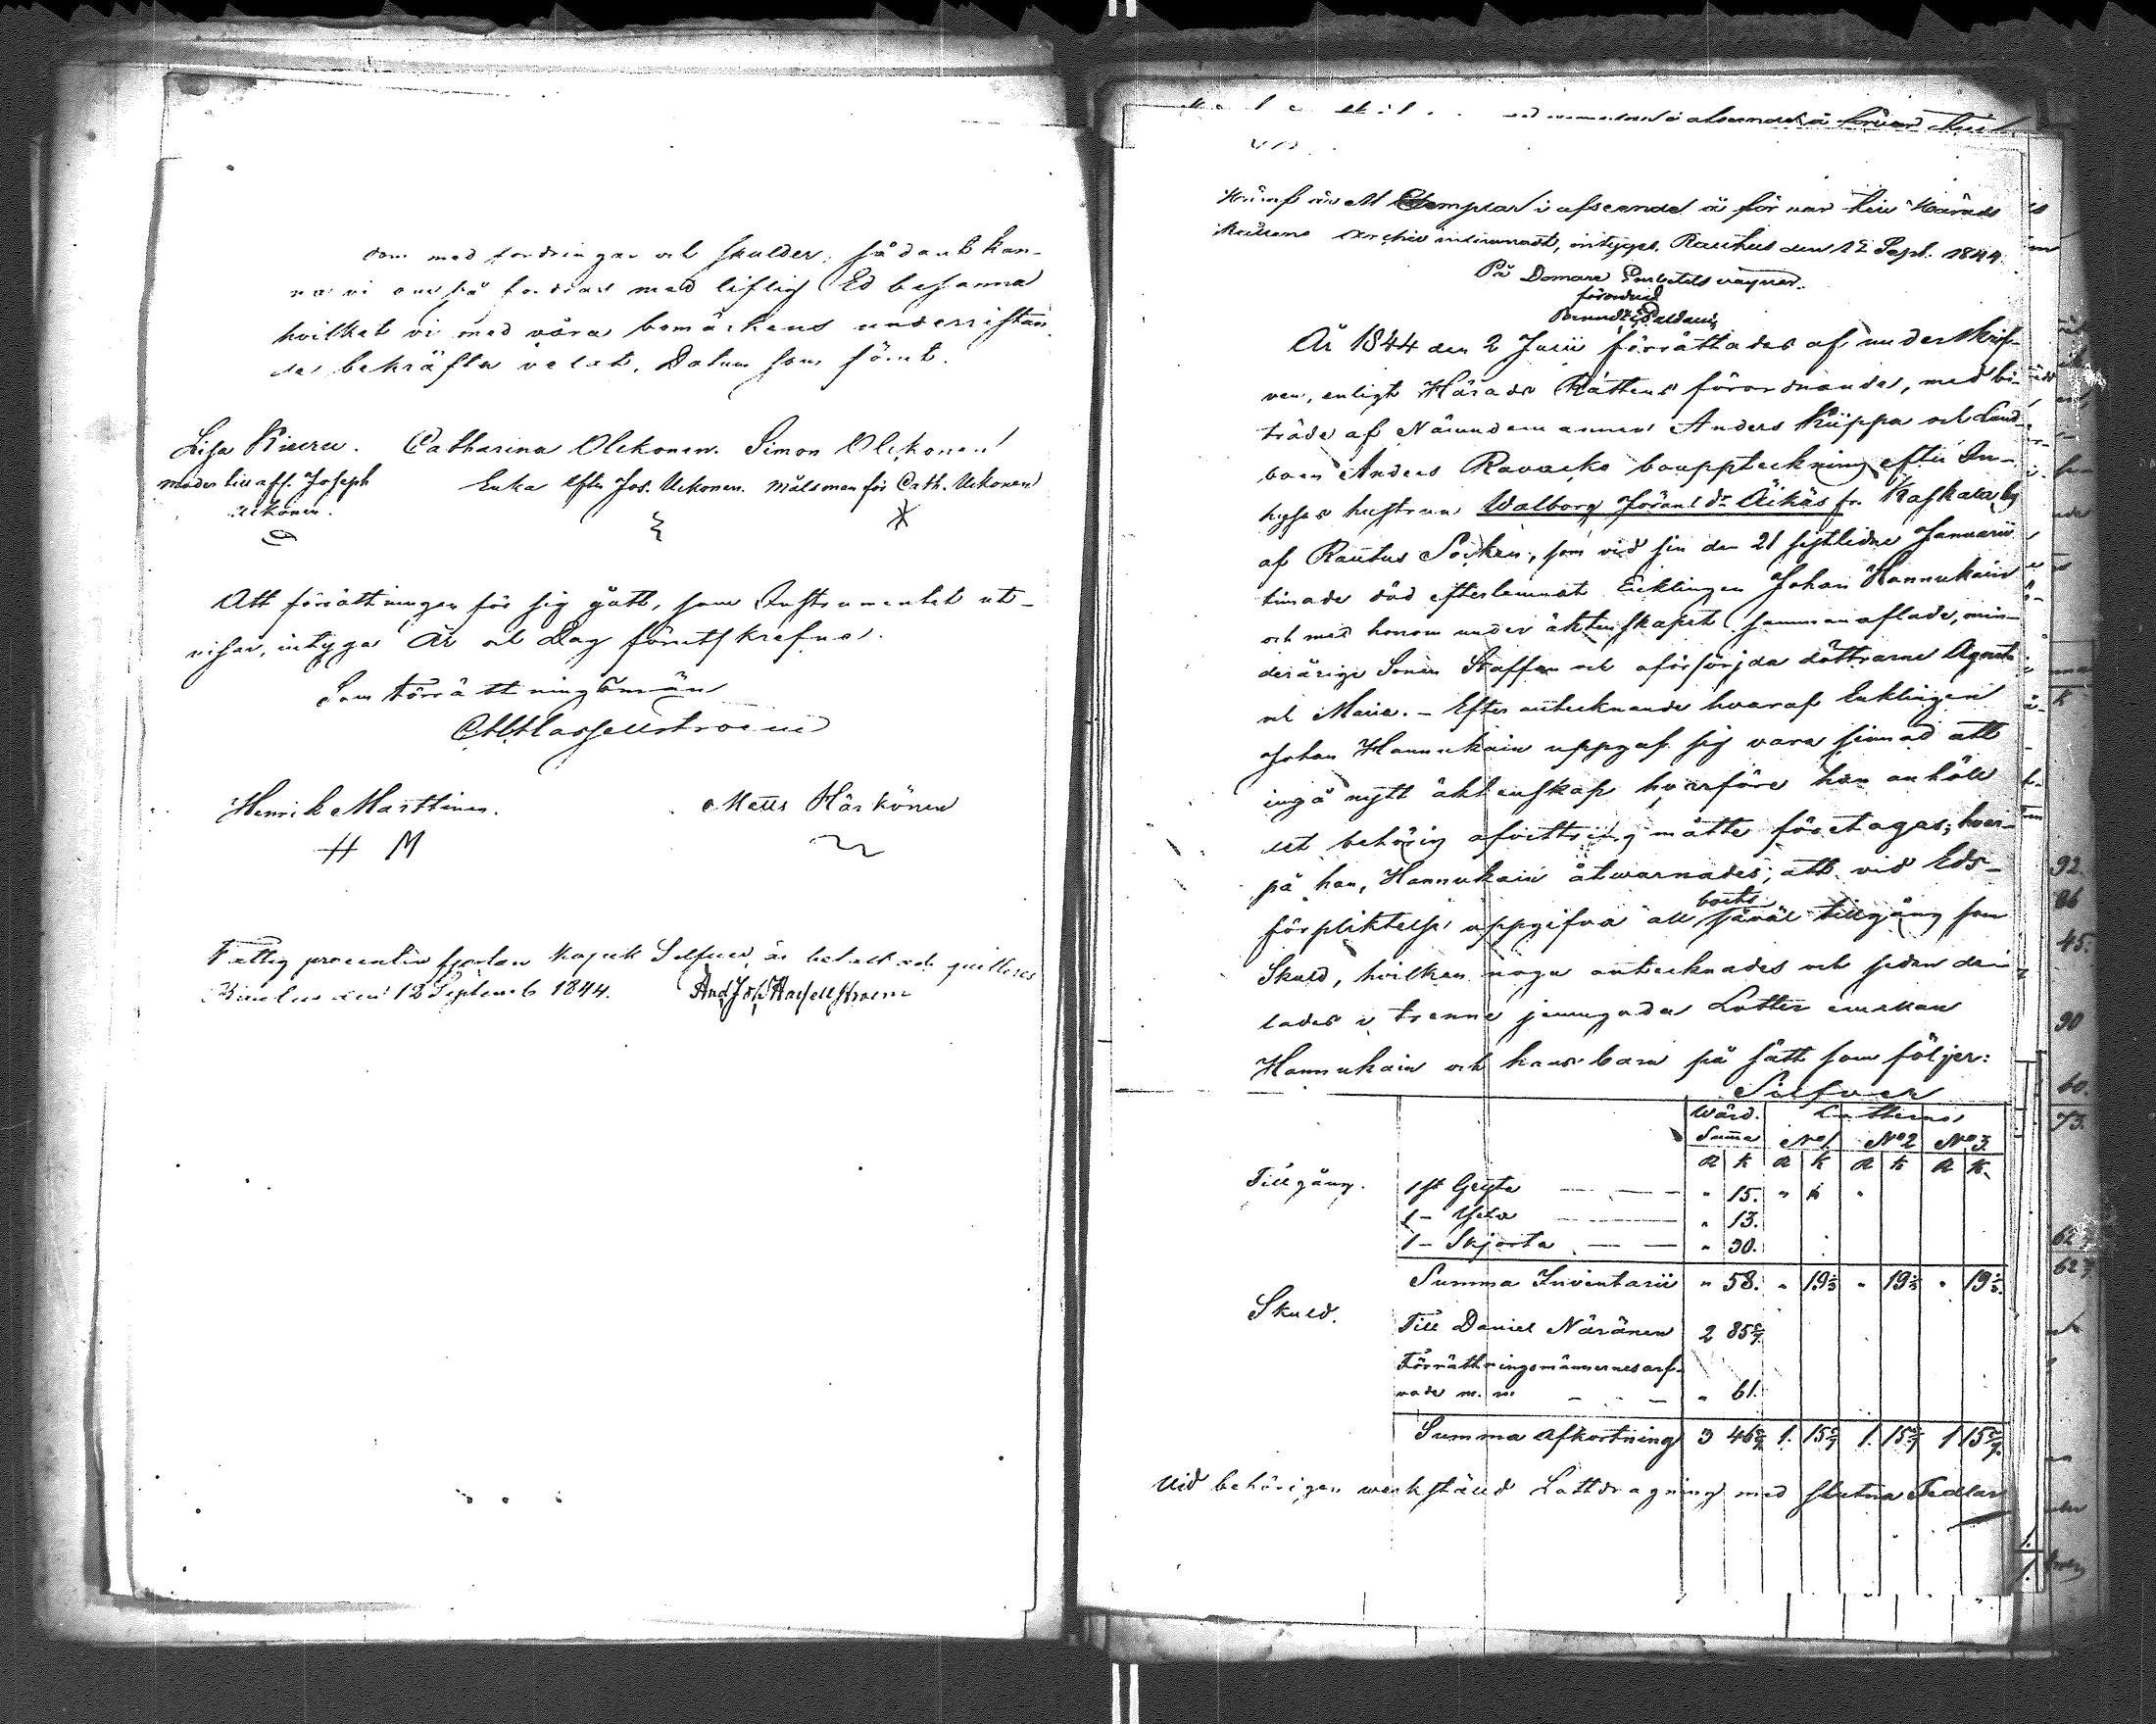 som med fordringar och skulder, sådant kun-
na vi om så fordras med liflig Ed besanna
hvilket vi med våra bomärkens underristan-
de bekräfta velat. Datum som förut.
Lisa Kiuru. Catharina Ulckonen. Simon Ulckonen
moder till afl. Joseph Enka efter Jos. Uckonen. målsman för Cath. Uckonen
Uckonen.
Att förrättningen för sig gått, som Instrumentet ut-
visar, intyga År och Dag förutskrefne.
Som Förrättningsmän
Hassellstroem
Henrik Marttinen. Matts Härkönen
H M
Fattig procenten fjorton kopek Silfver är betalt och quitteras
den 12 Septemb 1844. And Jos Hassellstroem
Hvaraf ett Exemplar i afseende å förvar till Härads
Rättens Archiv inlemnadt, intygas. Rautus den 12 Sept. 1844.
På Domare Embetets vägnar.
förordnad
År 1844 den 2 Julii förrättades af underskrif-
ven, enligt Härads Rättens förordnande, med bi-
träde af Nämndemannen Anders Kiippa och Land-
boen Anders Ravacko bouppteckning efter In-
hyses hustrun Walborg Jöransdr Äikäs fr. Kaskala by
af Rautus Socken, som vid sin den 21 sistlidne Januarii
timade död efterlemnat Enklingen Johan Hannukain
och med honom under äktenskapet sammanaflade, min-
derårige Sonen Staffan och oförsörjda döttrarne Agneta
och Maria. – Efter antecknande hvaraf Enklingen
Johan Hannukain uppgaf sig vara sinnad att
ingå nytt äktenskap hvarföre han anhöll
att behörig afvittring måtte företagas; hvar-
på han, Hannukain åtwarnades, att vid Eds-
förpliktelse uppgifva all boets såväl tillgång som
Skuld, hvilken noga antecknades och sedan de-
lades i trenne jemngoda Lotter emellan
Hannukain och hans barn på sätt som följer:
Silfver
Wärd. Lotterne
Summa No 1. No 2 No 3.
R K R K R K R K
Tillgång. 1 st Gryta — — — " 15. "
1 – Yxa — — " 13.
1 – Skjorta — — " 30.
Summa Inventarii " 58. " 19 1/3 " 19 1/3 " 19 1/3.
Skuld. Till Daniel Näränen 2 85 5/7
Förrättningsmännernes arf-
vode m. m. – – " 61.
Summa Afkortning 3 46 5/7 1. 15 5/7 1. 15 5/7 1 15 5/7.
Vid behörigen werkställd Lottdragning med slutna Sedlar